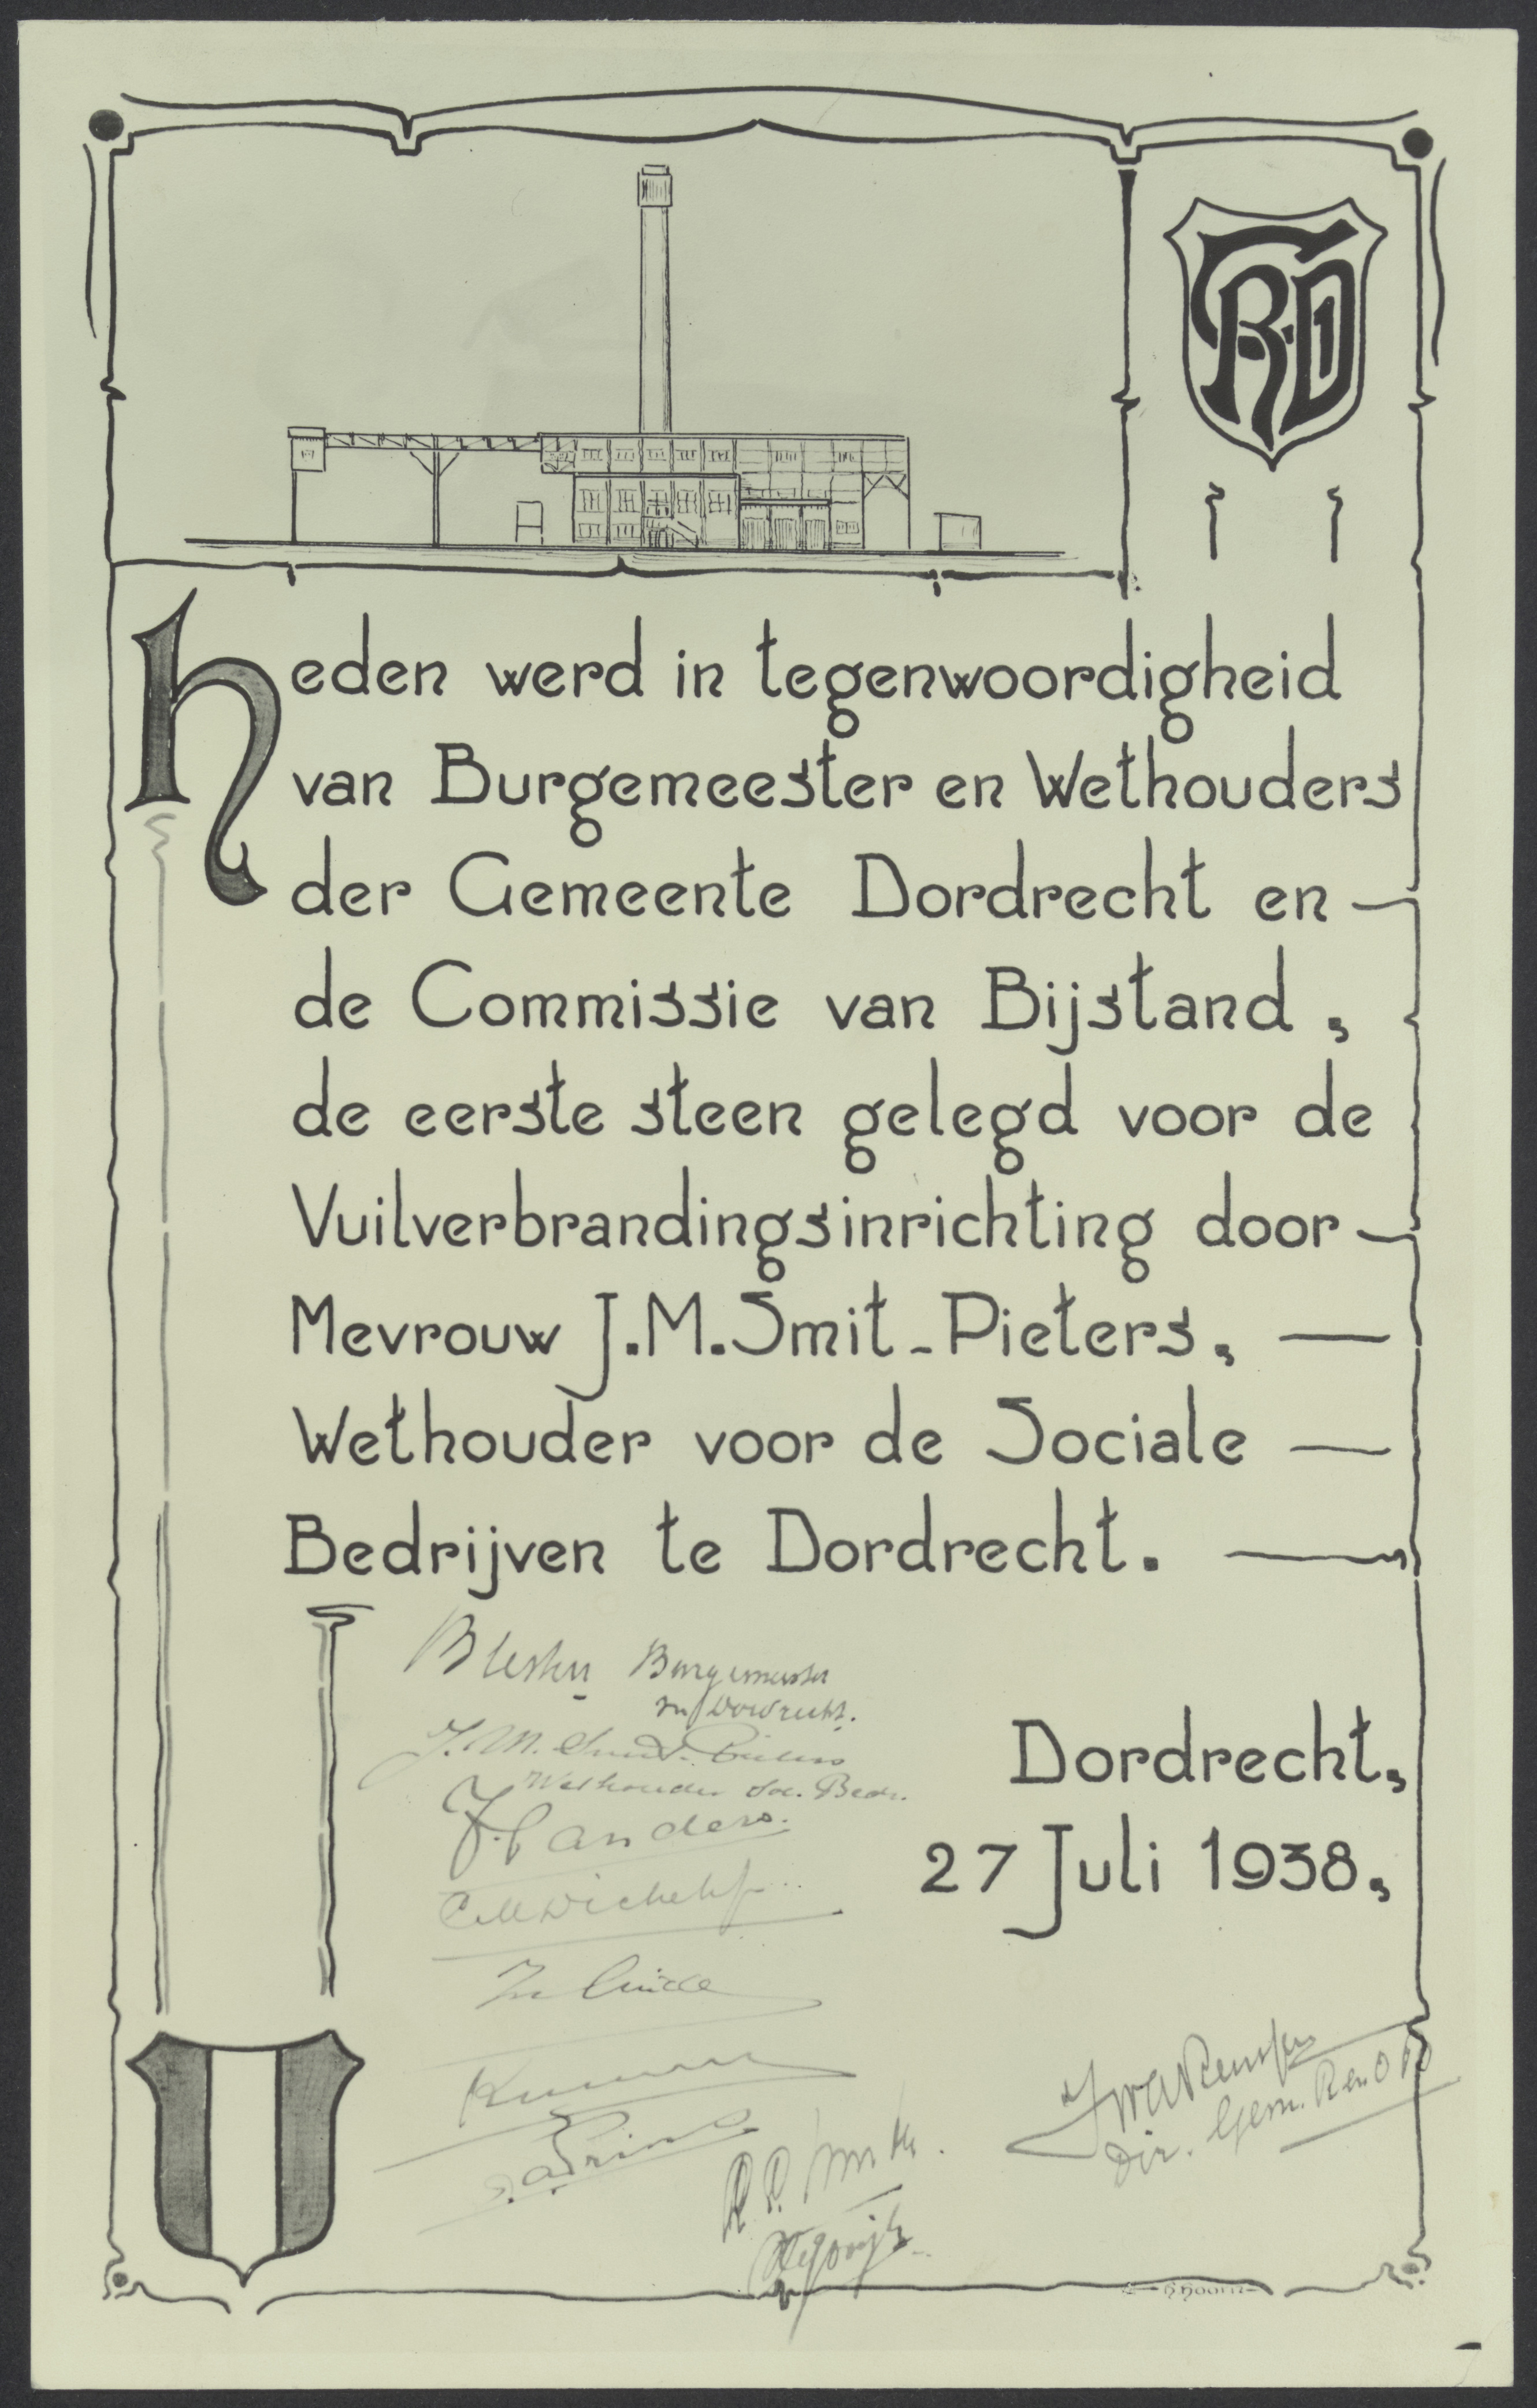 GRD
Heden werd in tegenwoordigheid
van Burgemeester en Wethouders
der Gemeente Dordrecht en
de Commissie van Bijstand,
de eerste steen gelegd voor de
Vuilverbrandingsinrichting door
Mevrouw J.M. Smit-Pieters,
Wethouder voor de Sociale
Bedrijven te Dordrecht.
Burgemeester
van Dordrecht.
J.M. Smit-Pieters
Wethouder Soc. Bedr.
Dordrecht,
27 Juli 1938,
Dir. Gem.